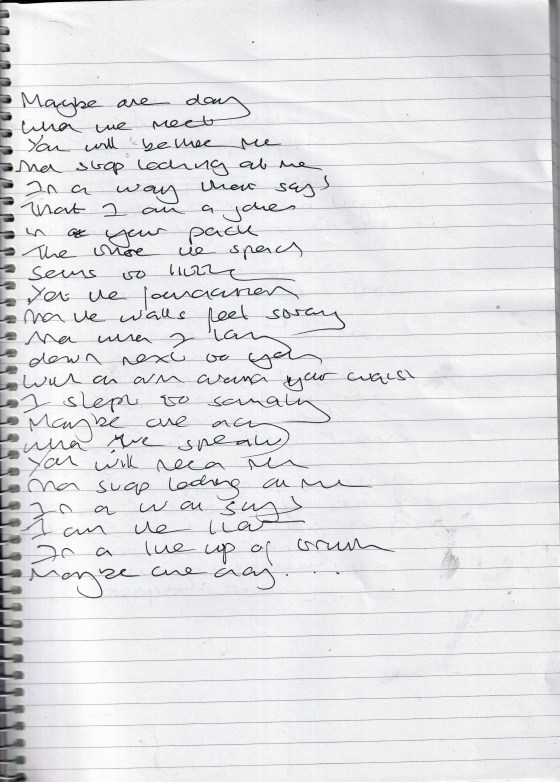 Maybe one day
when we meet
You will believe me
And stop looking at me
In a way that says
That I am a joker
in your pack
The whole we speach
Seems so little
Yet the foundation
And the walls feel strong
And when I lay
down next to you
With an arm around your waist
I sleep so soundly
Maybe one day
when we speak
You will need me
And stop looking at me
In a way says
I am the liar
In a line up of
Maybe one day....